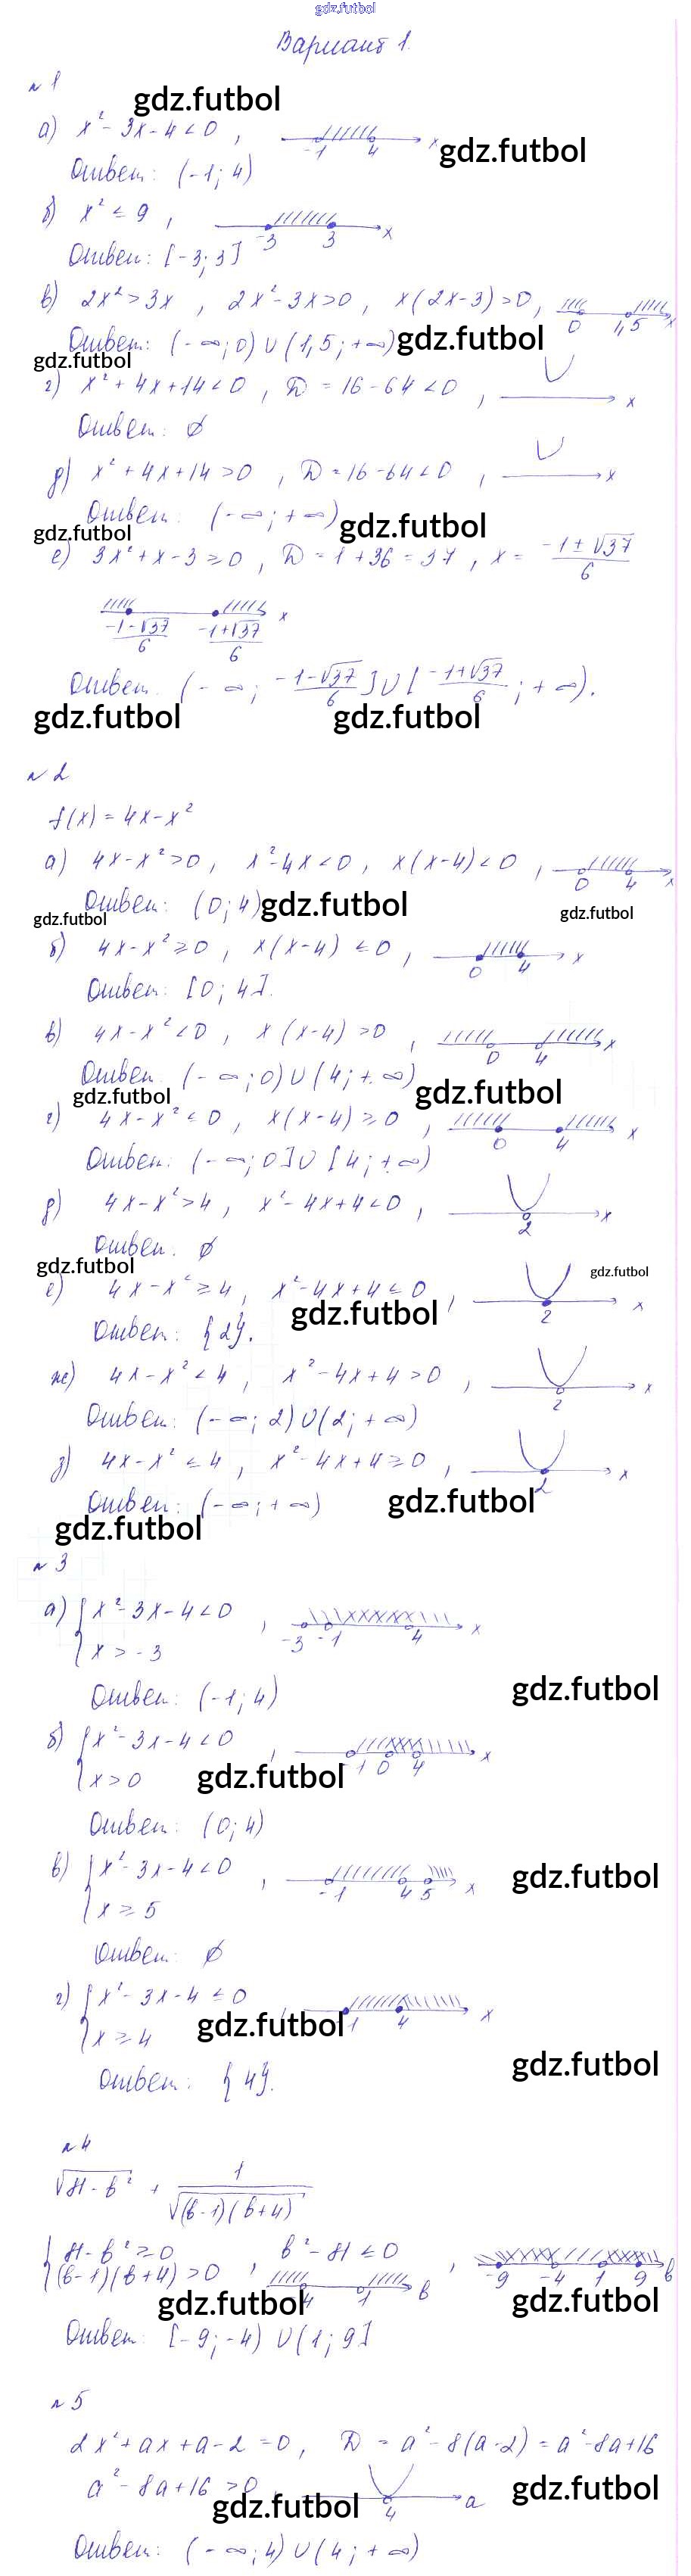 gdz.futbol
Вариант 1.
№ 1
gdz.futbol
а) x² - 3x - 4 < 0 ,
-1 4 x
gdz.futbol
Ответ: (-1; 4)
б) x² ≤ 9 ,
-3 3 x
Ответ: [-3; 3]
в) 2x² > 3x , 2x² - 3x > 0 , x(2x-3) > 0 ,
0 1,5 x
Ответ: (-∞; 0) ∪ (1,5; +∞)
gdz.futbol
gdz.futbol
г) x² + 4x + 14 < 0 , D = 16 - 64 < 0 , x
Ответ: ∅
д) x² + 4x + 14 > 0 , D = 16 - 64 < 0 , x
Ответ: (-∞; +∞)
gdz.futbol
gdz.futbol
е) 3x² + x - 3 ≥ 0 , D = 1 + 36 = 37 , x = (-1 ± √37)/6
(-1-√37)/6 (-1+√37)/6 x
Ответ: (-∞; (-1-√37)/6] ∪ [(-1+√37)/6; +∞).
gdz.futbol gdz.futbol
№ 2
f(x) = 4x - x²
а) 4x - x² > 0 , x² - 4x < 0 , x(x-4) < 0 ,
0 4 x
Ответ: (0; 4)
gdz.futbol
gdz.futbol gdz.futbol
б) 4x - x² ≥ 0 , x(x-4) ≤ 0 ,
0 4 x
Ответ: [0; 4].
в) 4x - x² < 0 , x(x-4) > 0 ,
0 4 x
Ответ: (-∞; 0) ∪ (4; +∞)
gdz.futbol gdz.futbol
г) 4x - x² ≤ 0 , x(x-4) ≥ 0 ,
0 4 x
Ответ: (-∞; 0] ∪ [4; +∞)
д) 4x - x² > 4 , x² - 4x + 4 < 0 ,
2 x
Ответ: ∅
gdz.futbol gdz.futbol
е) 4x - x² ≥ 4 , x² - 4x + 4 ≤ 0 ,
gdz.futbol
2 x
Ответ: {2}.
ж) 4x - x² < 4 , x² - 4x + 4 > 0 ,
2 x
Ответ: (-∞; 2) ∪ (2; +∞)
з) 4x - x² ≤ 4 , x² - 4x + 4 ≥ 0 ,
2 x
Ответ: (-∞; +∞)
gdz.futbol
gdz.futbol
№ 3
а) { x² - 3x - 4 < 0 ,
x > -3
-3 -1 4 x
Ответ: (-1; 4)
gdz.futbol
б) { x² - 3x - 4 < 0 ,
x > 0
-1 0 4 x
gdz.futbol
Ответ: (0; 4)
в) { x² - 3x - 4 < 0 ,
x ≥ 5
-1 4 5 x
gdz.futbol
Ответ: ∅
г) { x² - 3x - 4 ≤ 0
x ≥ 4
-1 4 x
gdz.futbol
gdz.futbol
Ответ: {4}.
№ 4
√(81 - b²) + 1/√((b-1)(b+4))
{ 81 - b² ≥ 0 , b² - 81 ≤ 0 ,
(b-1)(b+4) > 0
-4 1 b
-9 -4 1 9 b
gdz.futbol gdz.futbol
Ответ: [-9; -4) ∪ (1; 9]
№ 5
2x² + ax + a - 2 = 0 , D = a² - 8(a-2) = a² - 8a + 16
a² - 8a + 16 > 0
4 a
gdz.futbol
gdz.futbol
Ответ: (-∞; 4) ∪ (4; +∞)